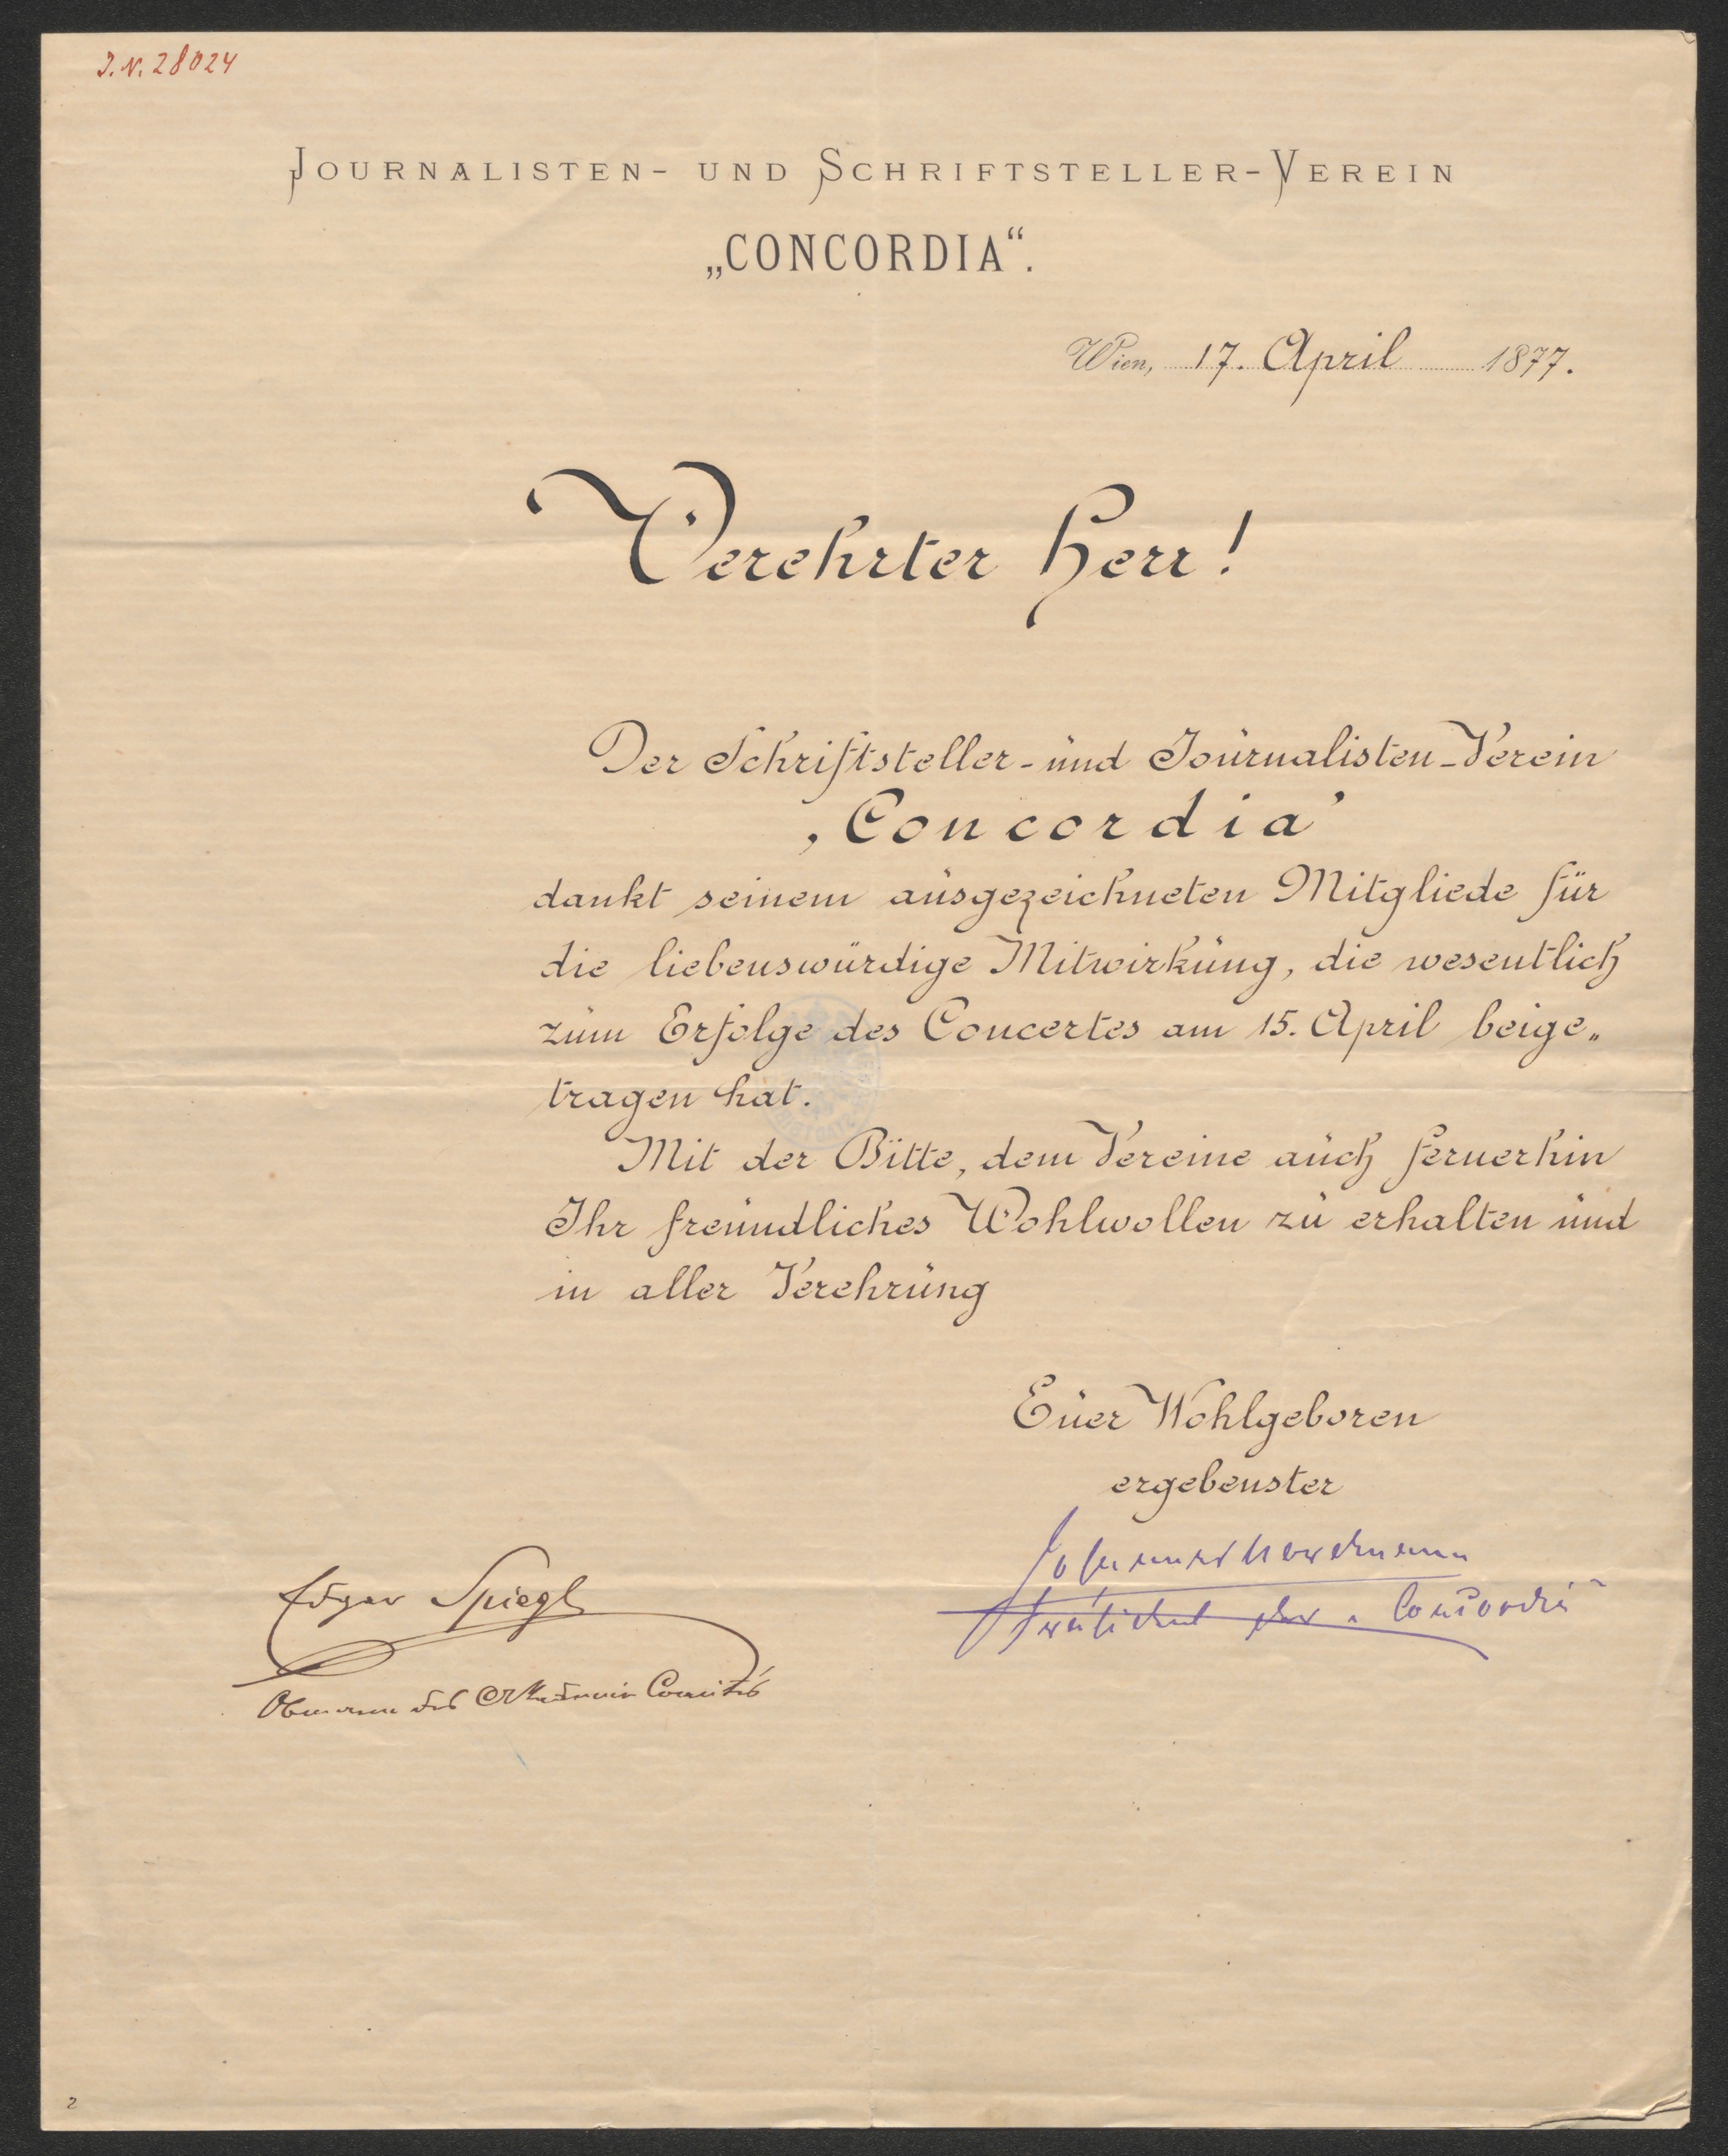 J.N. 28024
JOURNALISTEN- UND SCHRIFTSTELLER-VEREIN
„CONCORDIA“.
Wien, 17. April 1877.
Verehrter Herr!
Der Schriftsteller- und Journalisten-Verein
‚Concordia’
dankt seinem ausgezeichneten Mitgliede für
die liebenswürdige Mitwirkung, die wesentlich
zum Erfolge des Concertes am 15. April beige„
tragen hat.
Mit der Bitte, dem Vereine auch fernerhin
Ihr freundliches Wohlwollen zu erhalten und
in aller Verehrung
Euer Wohlgeboren
ergebenster
Johannes Nordmann
Präsident der „Concordia“
Edgar Spiegl
Obmann des Comités
2